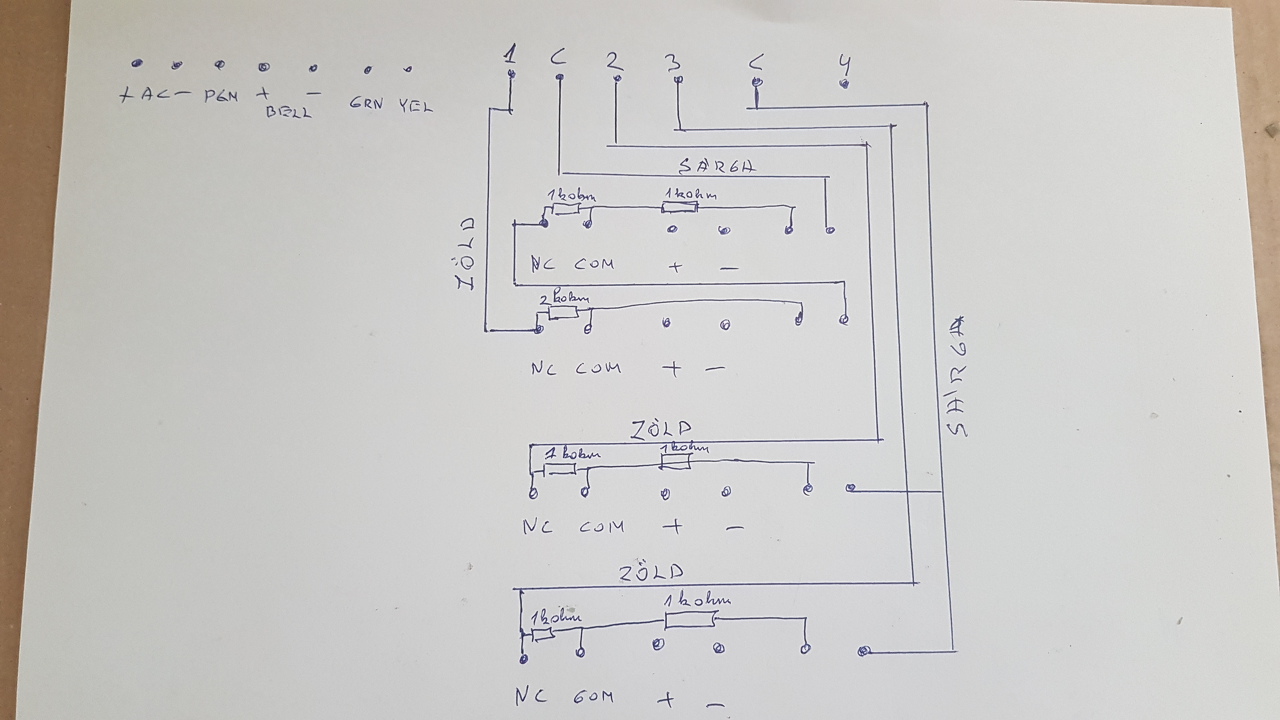 1 C 2 3 C 4
+ AC - PGM + - GRN YEL
BELL
SÁRGA
1 kohm 1 kohm
ZÖLD
NC COM + -
2 kohm
NC COM + -
SÁRGA
ZÖLD
1 kohm 1 kohm
NC COM + -
ZÖLD
1 kohm 1 kohm
NC COM + -